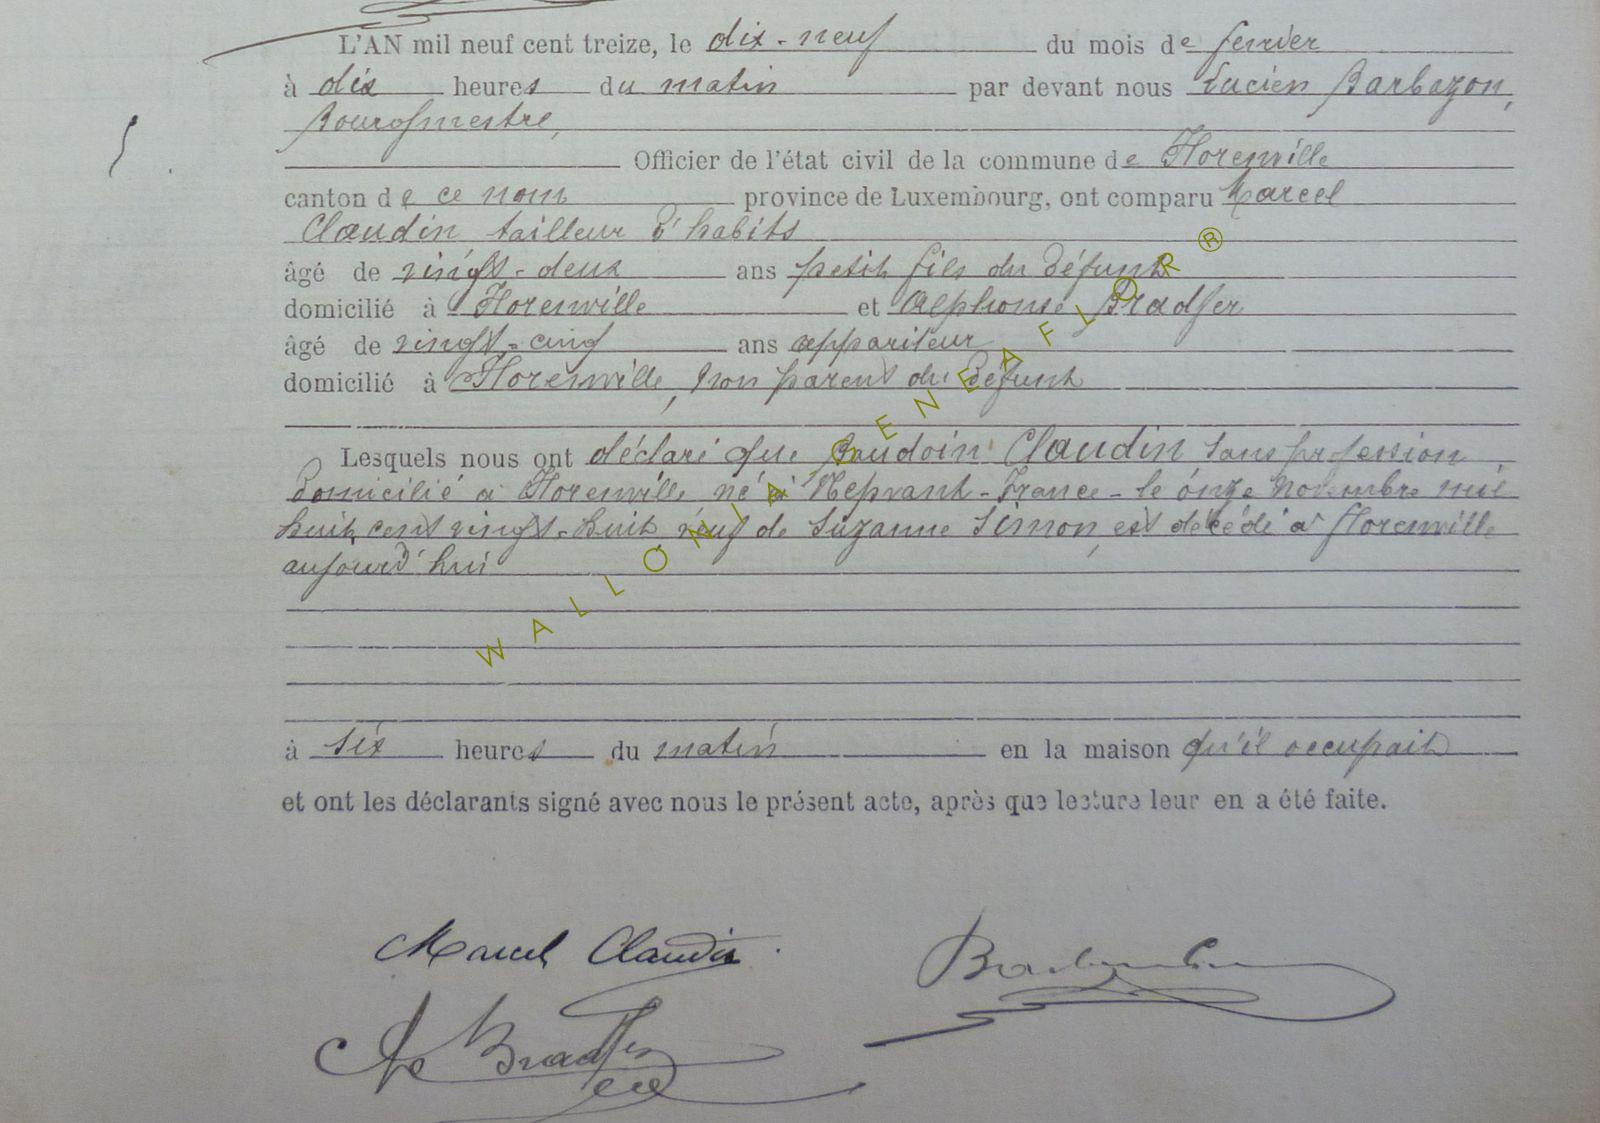 L'AN mil neuf cent treize, le dix-neuf du mois de fevrier
à dix heures du matin par devant nous Lucien Barbazon,
Bourgmestre,
Officier de l'état civil de la commune de Florenville
canton de ce nom province de Luxembourg, ont comparu Marcel
Claudin tailleur d'habits
âgé de vingt-deux ans petit fils du défunt
domicilié à Florenville et Alphonse Bradfer
âgé de vingt-cinq ans appariteur
domicilié à Florenville, non parent du défunt
Lesquels nous ont déclaré que Baudoin Claudin sans profession
domicilié à Florenville né à Nepvant-France-le onze novembre mil
huit cent vingt-huit, veuf de Suzanne Simon, est décédé à Florenville
aujourd'hui
à six heures du matin en la maison qu'il occupait
et ont les déclarants signé avec nous le présent acte, après que lecture leur en a été faite.
Marcel Claudin
Bradfer
WALLONIA GENEAFLOR ®